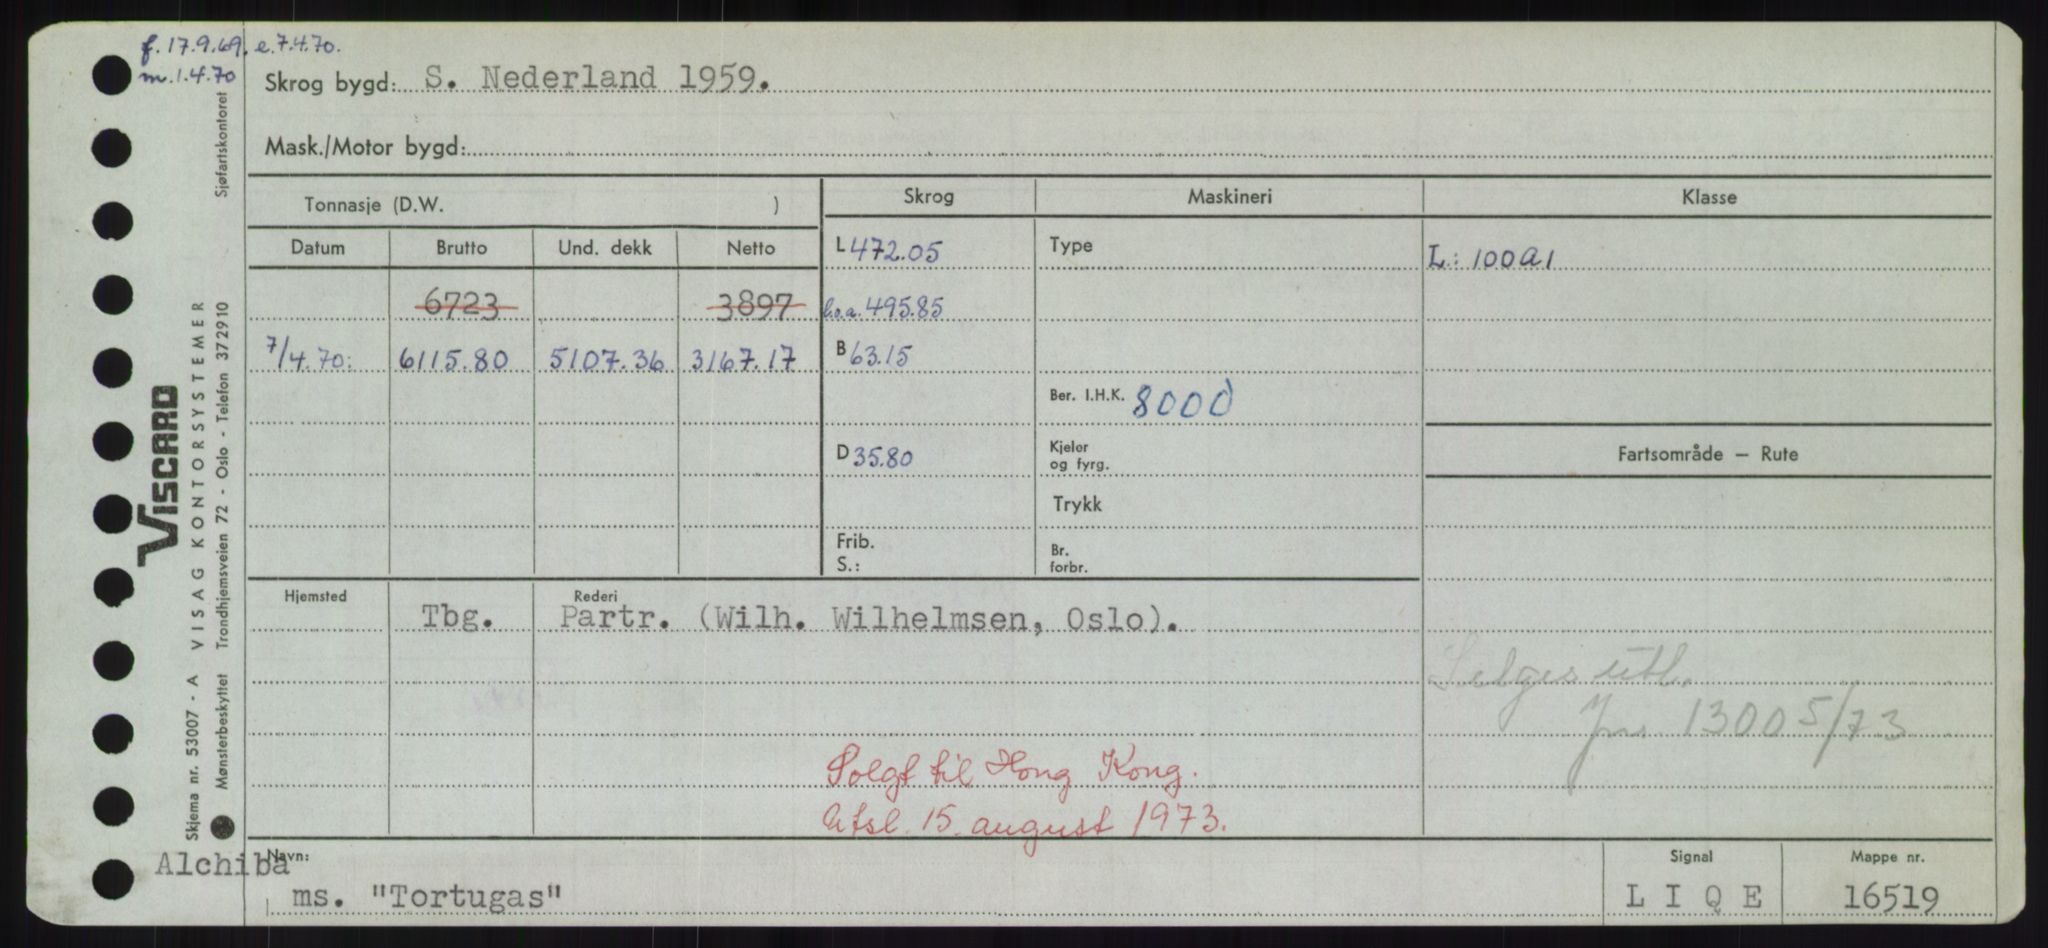 f. 17.9.69. e.7.4.70.
m. 1.4.70
Skrog bygd: S. Nederland 1959.
Mask./Motor bygd:
Tonnasje (D.W. )
Skrog
Maskineri
Klasse
Datum
Brutto
Und. dekk
Netto
L 472.05
Type
L: 100A1
6723
3897
l.o.a. 495.85
7/4.70:
6115.80
5107.36
3167.17
B 63.15
Ber. I.H.K. 8000
D 35.80
Kjeler
og fyrg.
Fartsområde — Rute
Trykk
Frib.
S.:
Br.
forbr.
Hjemsted
Tbg.
Rederi
Partr. (Wilh. Wilhelmsen, Oslo).
Selges utl.
1300 5/73
Solgt til Hong Kong.
Utsl. 15. august 1973.
Alchiba
Navn:
ms. "Tortugas"
Signal
L I Q E
Mappe nr.
16519
Sjøfartskontoret
VISCARD
VISAG KONTORSYSTEMER
Trondhjemsveien 72 - Oslo - Telefon 372910
Skjema nr. 53007 - A
Mønsterbeskyttet